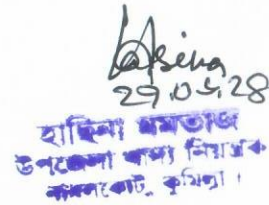 Hasina
29.05.28
হাছিনা মমতাজ
উপজেলা খাদ্য নিয়ন্ত্রক
নাঙ্গলকোট, কুমিল্লা।